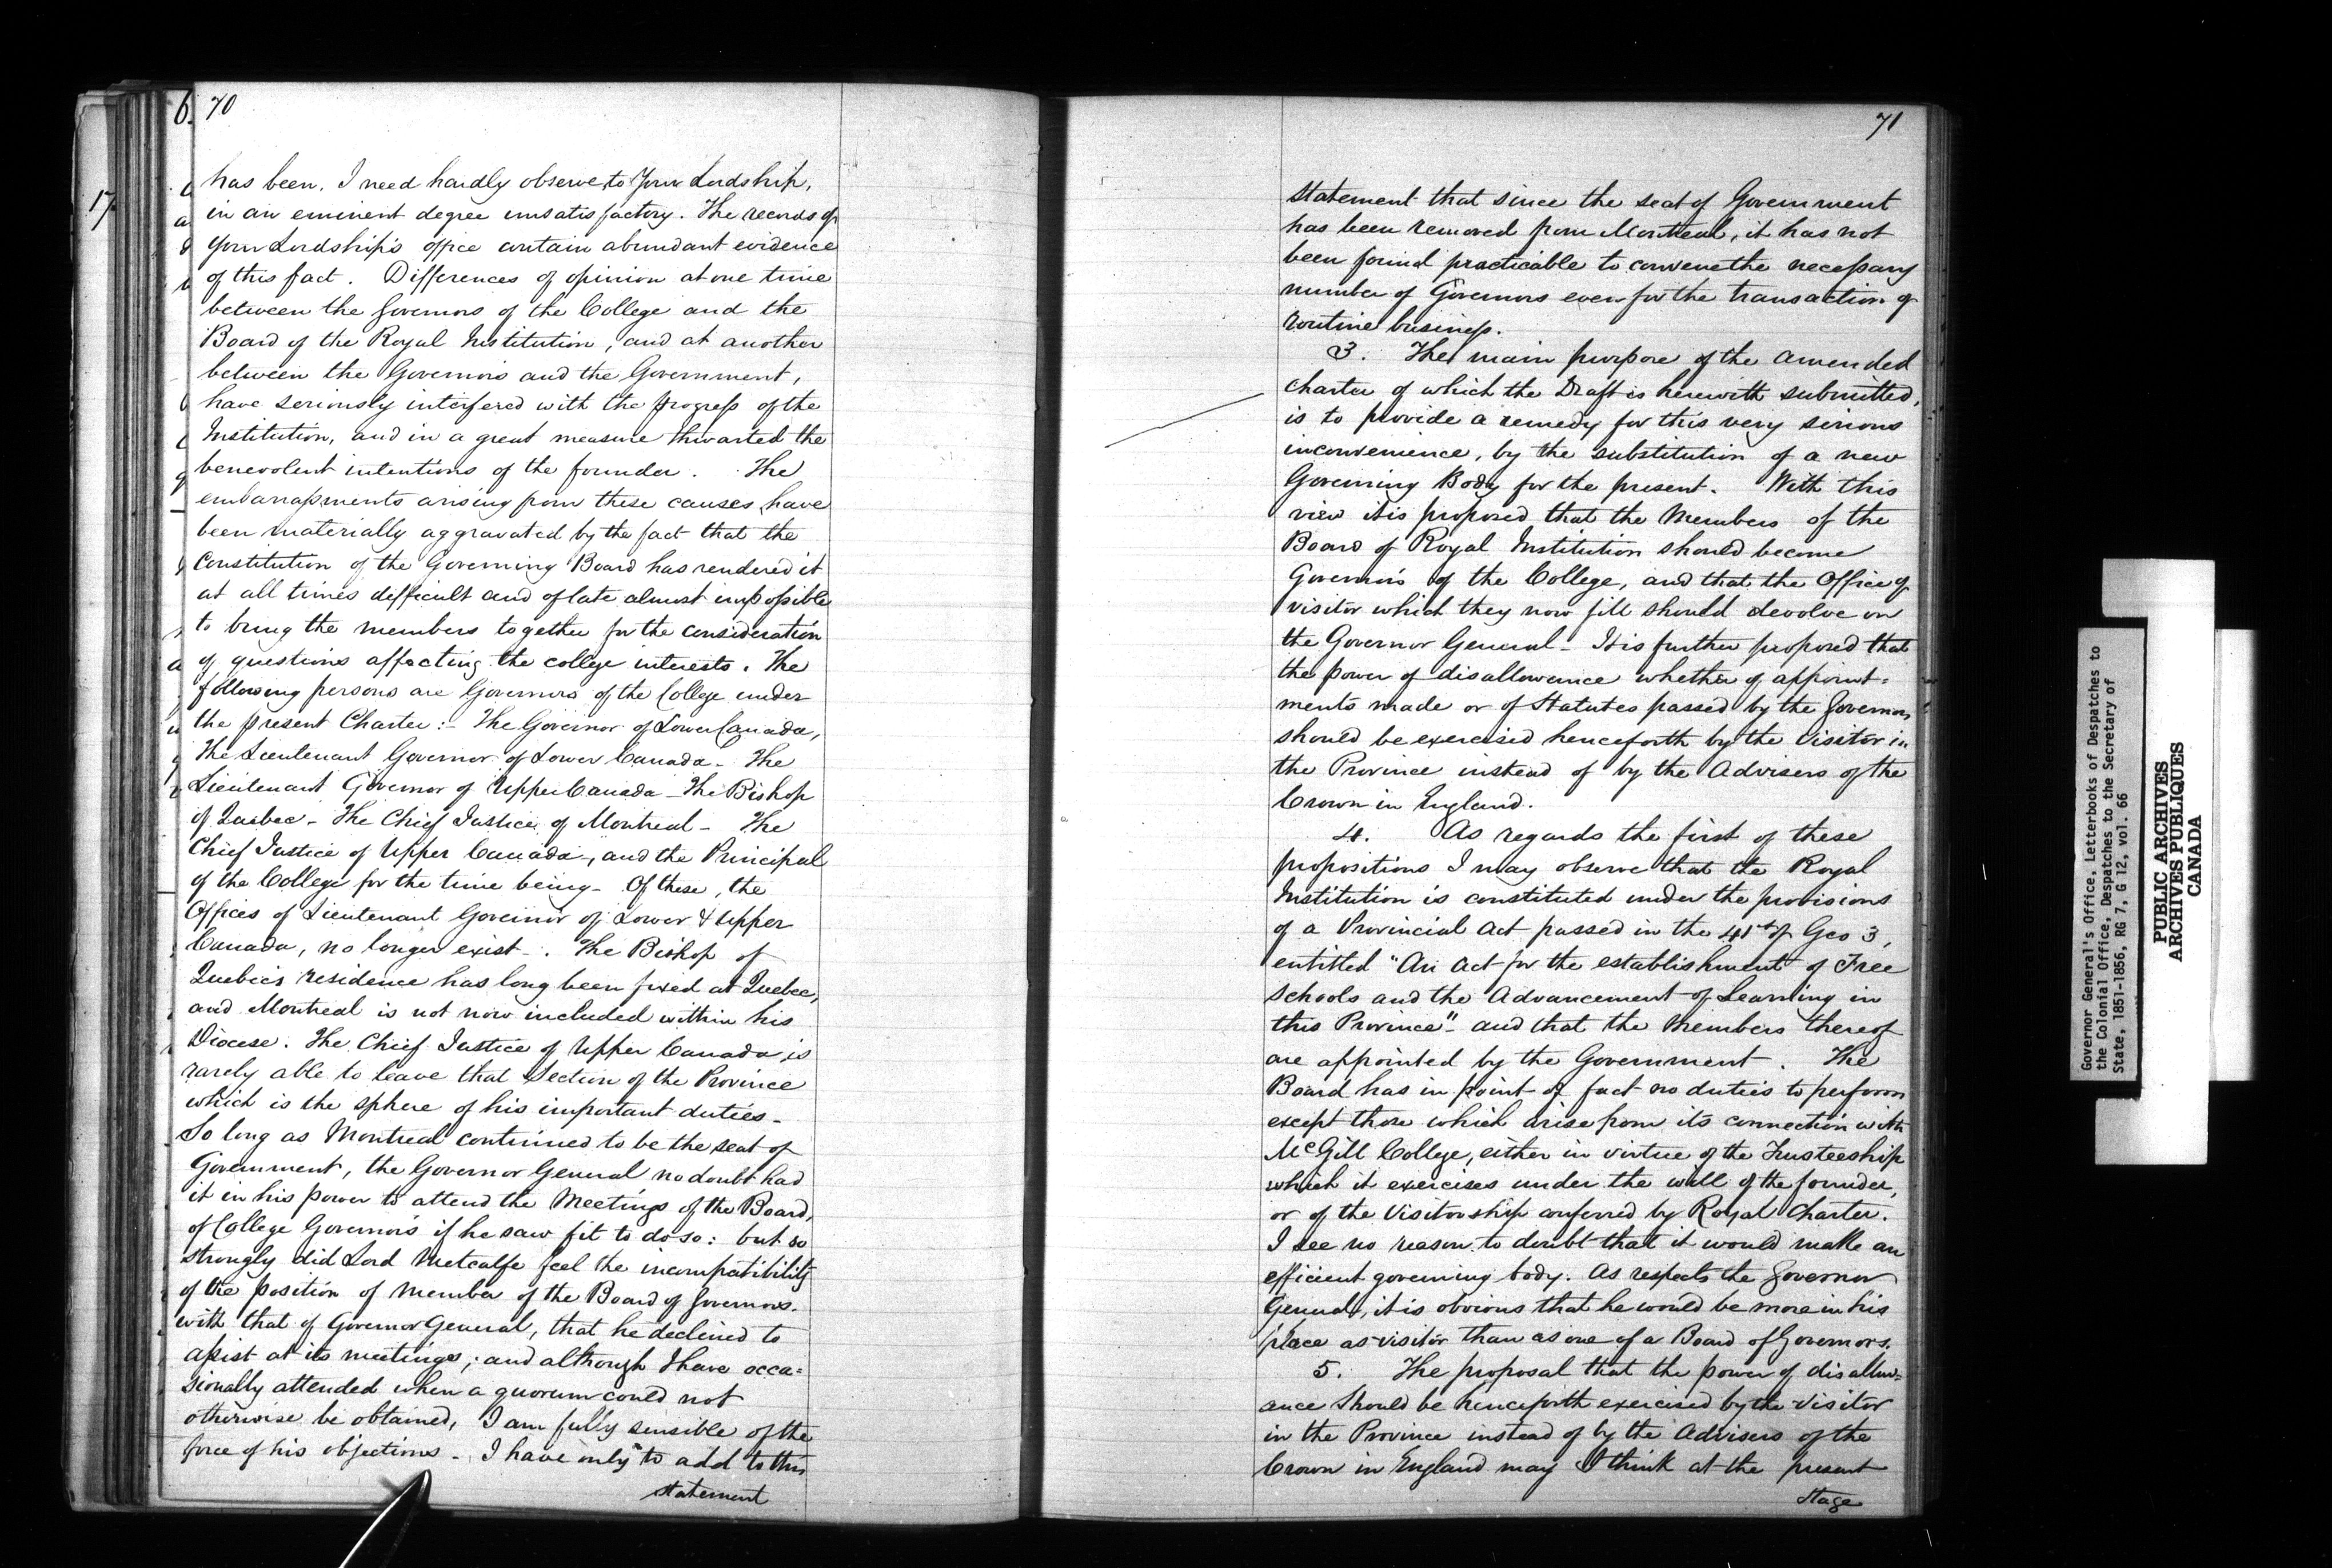 70
has been, I need hardly observe to Your Lordship,
in an eminent degree unsatisfactory. The records of
Your Lordship's office contain abundant evidence
of this fact. Differences of opinion at one time
between the Governors of the College and the
Board of the Royal Institution, and at another
between the Governors and the Government,
have seriously interfered with the progress of the
Institution, and in a great measure thwarted the
benevolent intentions of the founder. The
embarrassments arising from these causes have
been materially aggravated by the fact that the
Constitution of the Governing Board has rendered it
at all times difficult and of late almost impossible
to bring the members together for the consideration
of questions affecting the college interests. The
following persons are Governors of the College under
the present Charter:- The Governor of Lower Canada,
The Lieutenant Governor of Lower Canada - The
Lieutenant Governor of Upper Canada - The Bishop
of Quebec - The Chief Justice of Montreal - The
Chief Justice of Upper Canada -, and the Principal
of the College for the time being - Of these, the
Offices of Lieutenant Governor of Lower & Upper
Canada, no longer exist -. The Bishop of
Quebec's residence has long been fixed at Quebec,
and Montreal is not now included within his
Diocese. The Chief Justice of Upper Canada is
rarely able to leave that Section of the Province
which is the sphere of his important duties -
So long as Montreal continued to be the seat of
Government, the Governor General no doubt had
it in his power to attend the Meetings of the Board,
of College Governors if he saw fit to do so: but so
strongly did Lord Metcalfe feel the incompatibility
of the position of Member of the Board of Governors
with that of Governor General, that he declined to
assist at its meetings; and although I have occa=
sionally attended when a quorum could not
otherwise be obtained, I am fully sensible of the
force of his objections - I have only to add to this
statement
71
statement that since the seat of Government
has been removed from Montreal, it has not
been found practicable to convene the necessary
number of Governors even for the transaction of
routine business.
3. The main purpose of the amended
Charter of which the Draft is herewith submitted,
is to provide a remedy for this very serious
inconvenience, by the substitution of a new
Governing Body for the present. With this
view it is proposed that the Members of the
Board of Royal Institution should become
Governors of the College, and that the Office of
visitor which they now fill should devolve on
the Governor General - It is further proposed that
the power of disallowance whether of appoint=
ments made or of Statutes passed by the Governors
should be exercised henceforth by the Visitor in
the Province instead of by the Advisers of the
Crown in England.
4. As regards the first of these
propositions I may observe that the Royal
Institution is constituted under the provisions
of a Provincial Act passed in the 41st of Geo 3,
entitled "An Act for the establishment of Free
Schools and the Advancement of Learning in
this Province" - and that the Members thereof
are appointed by the Government. The
Board has in point of fact no duties to perform
except those which arise from its connection with
McGill College, either in virtue of the Trusteeship
which it exercises under the will of the founder,
or of the Visitorship conferred by Royal Charter.
I see no reason to doubt that it would make an
efficient governing body. As respects the Governor
General, it is obvious that he would be more in his
place as visitor than as one of a Board of Governors.
5. The proposal that the power of disallow=
ance should be henceforth exercised by the Visitor
in the Province instead of by the Advisers of the
Crown in England may I think at the present
stage
Governor General's Office, Letterbooks of Despatches to
the Colonial Office, Despatches to the Secretary of
State, 1851-1856, RG 7, G 12, vol. 66
PUBLIC ARCHIVES
ARCHIVES PUBLIQUES
CANADA